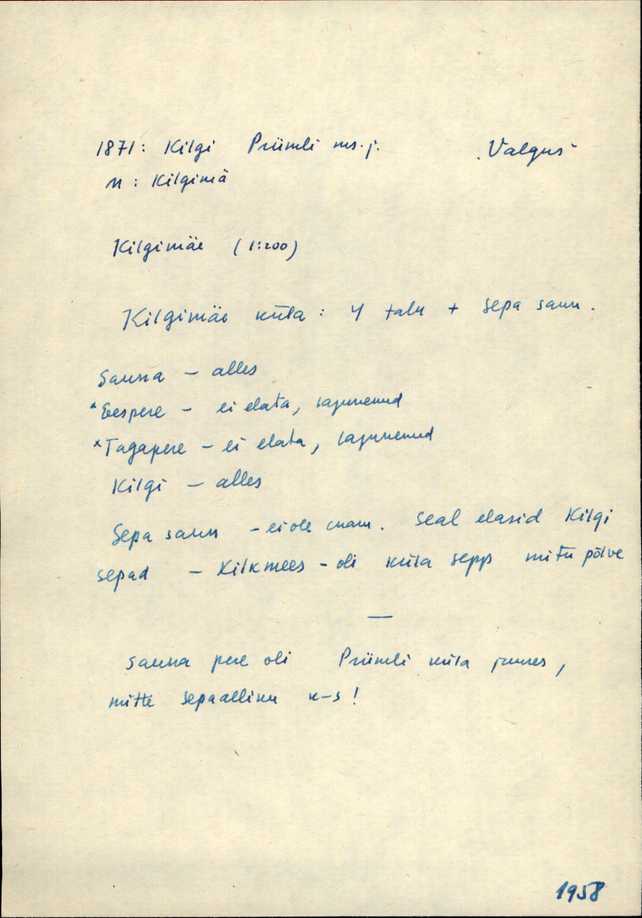 1871: Kilgi Prümli ms. j. „Valgus“
n : Kilgimä
Kilgimäe (1:200)
Kilgimäe küla : 4 talu + Sepa saun.
Sauna – alles
*Eespere – ei elata, lagunenud
*Tagapere – ei elata, lagunenud
Kilgi – alles
Sepa saun – ei ole enam. Seal elasid Kilgi
sepad – Kilkmees – oli küla sepp mitu põlve
—
Sauna pere oli Prümli küla juures,
mitte Sepaallika k-s!
1958